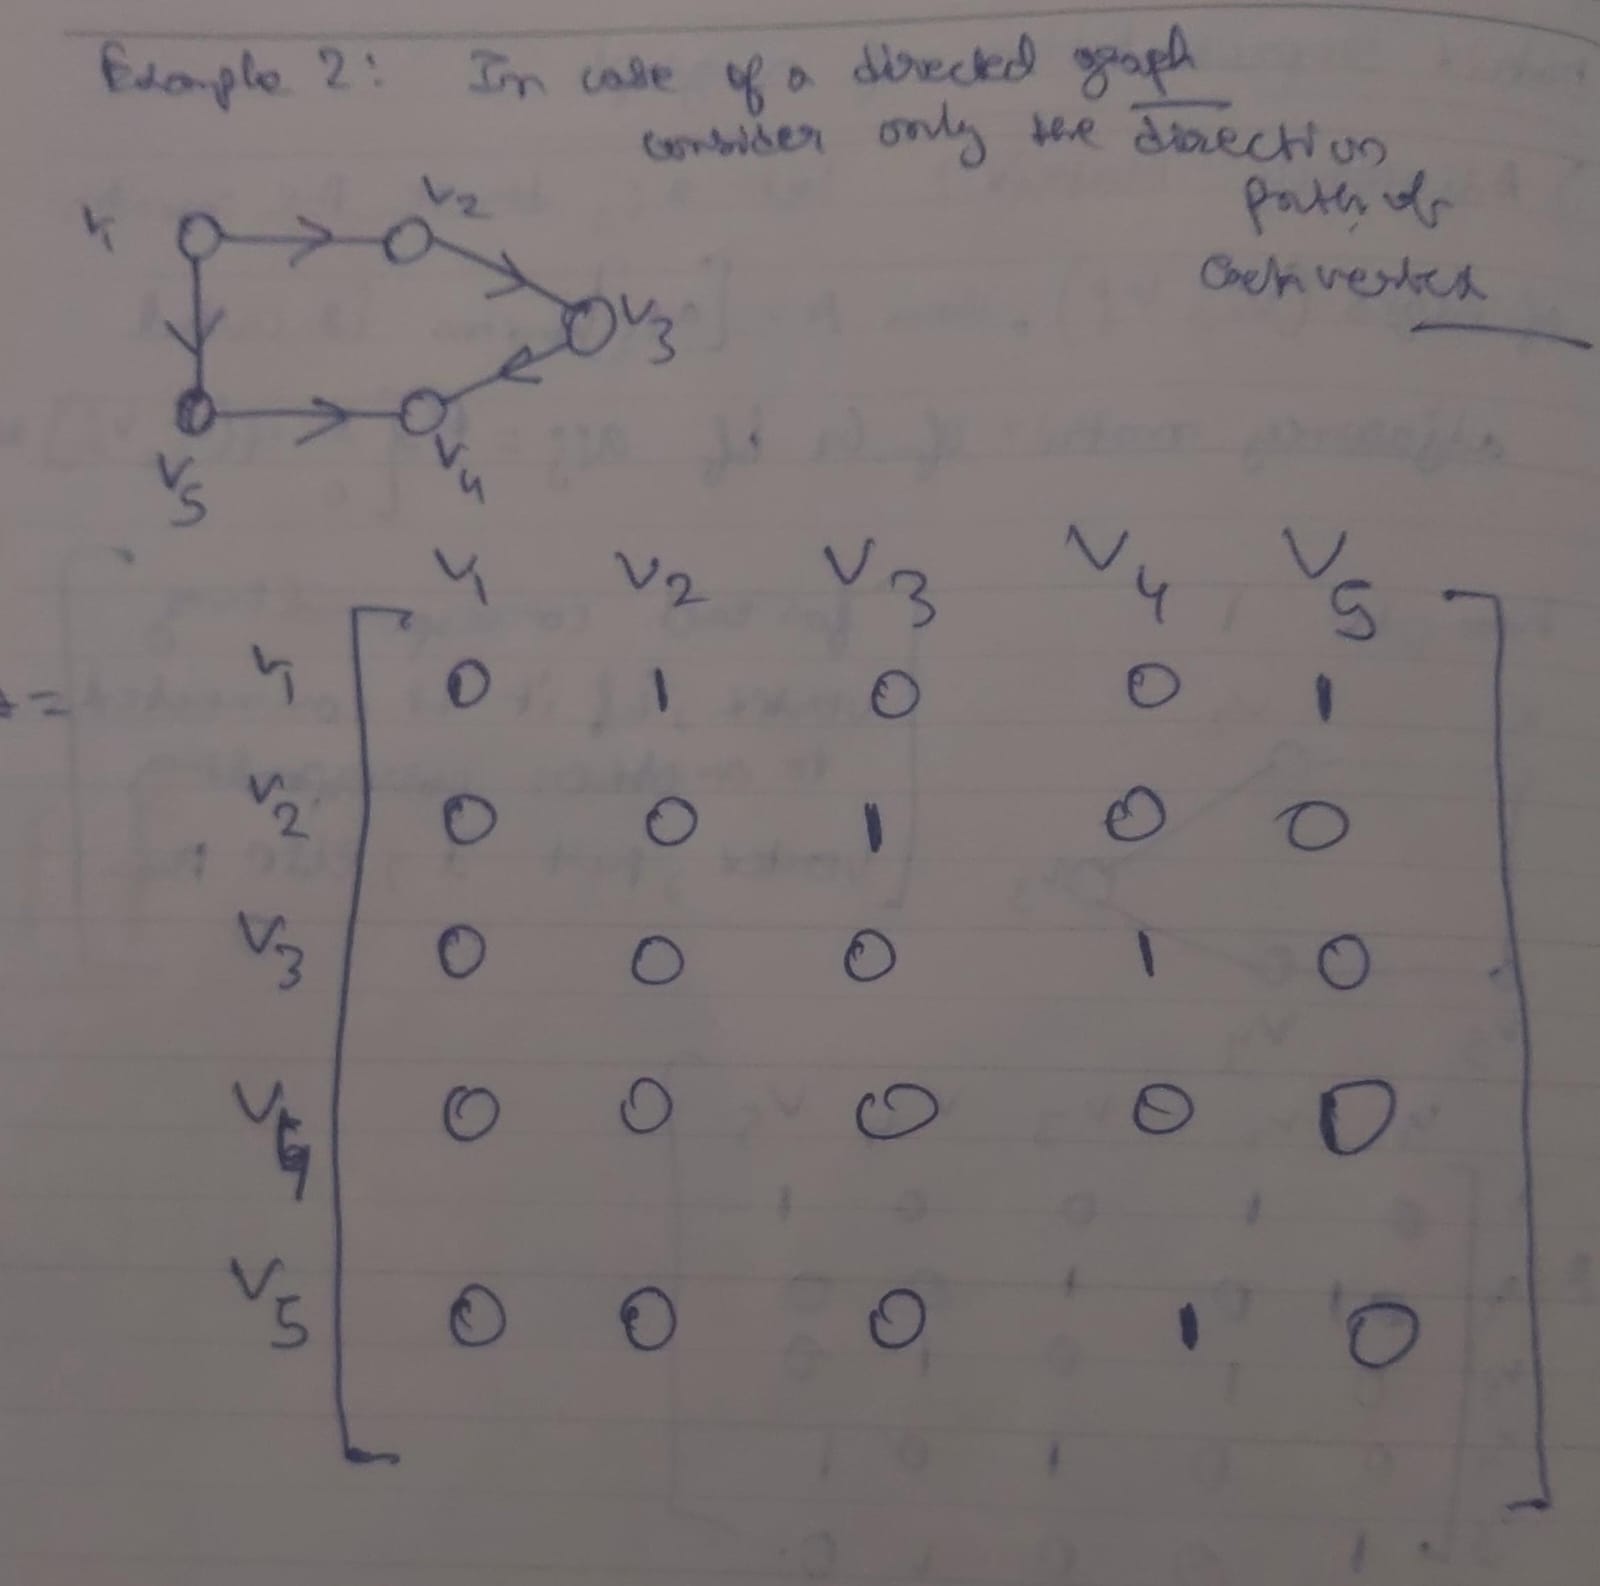 Example 2: In case of a directed graph
consider only the direction
path of
each vertex
V1 V2
V3
V5 V4
V1 V2 V3 V4 V5
A = V1 0 1 0 0 1
V2 0 0 1 0 0
V3 0 0 0 1 0
V4 0 0 0 0 0
V5 0 0 0 1 0